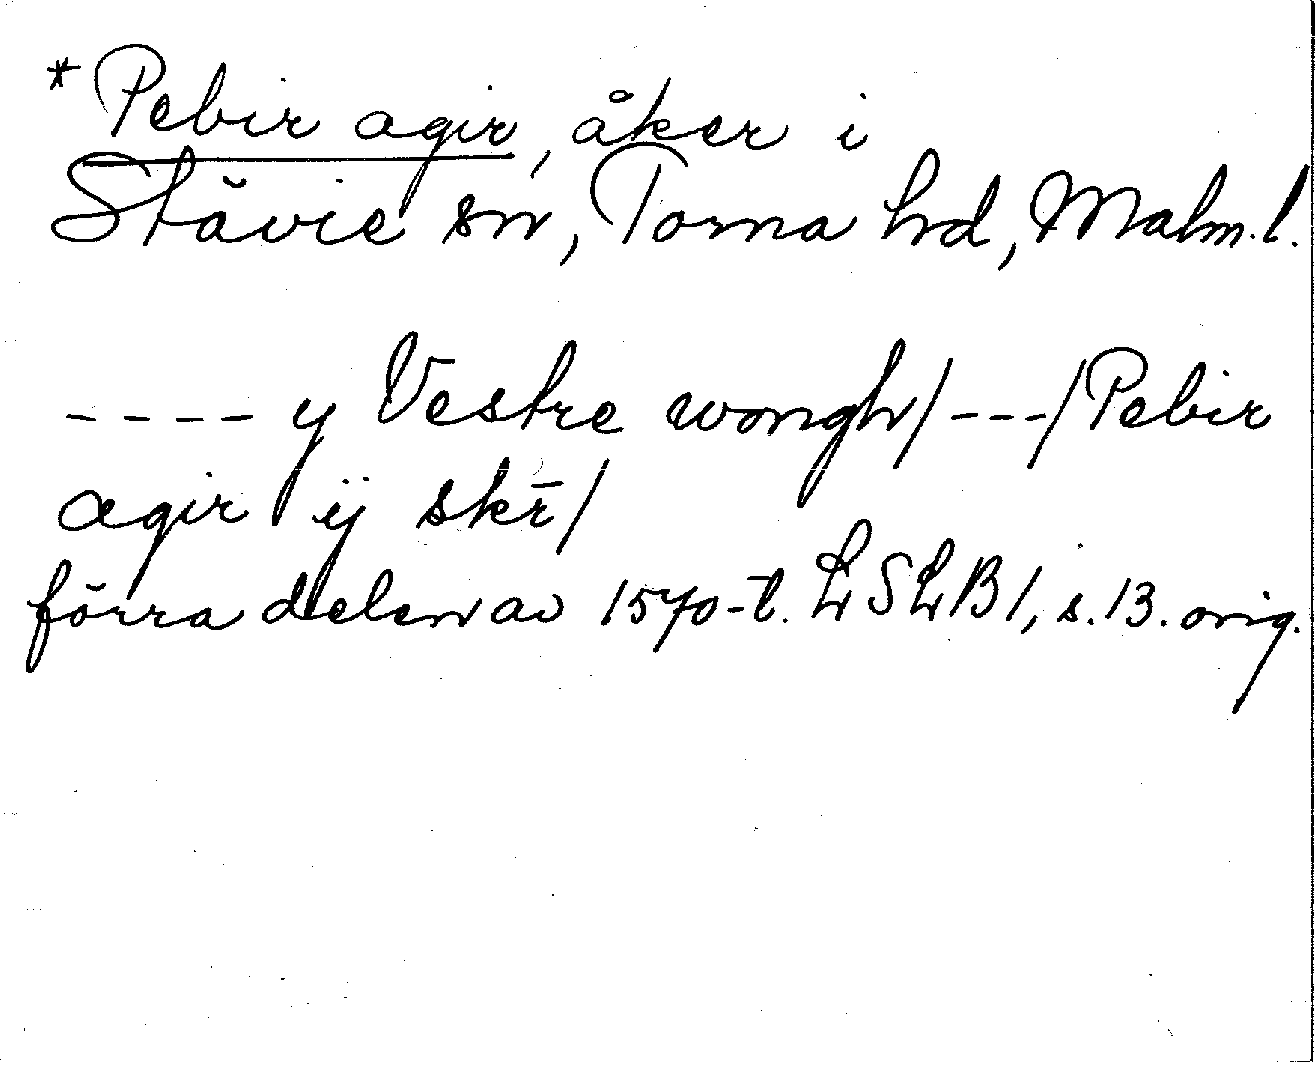 *Pebir agir, åker i
Stävie sn, Torna hd, Malm.l.
---- y Vestre wongh/---/Pebir
agir ij skr̄/
förra delen av 1570-t. LSLB 1, s.13. orig.